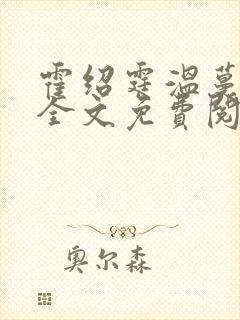 霍绍霆温蔓
全文免费阅
奥尔森